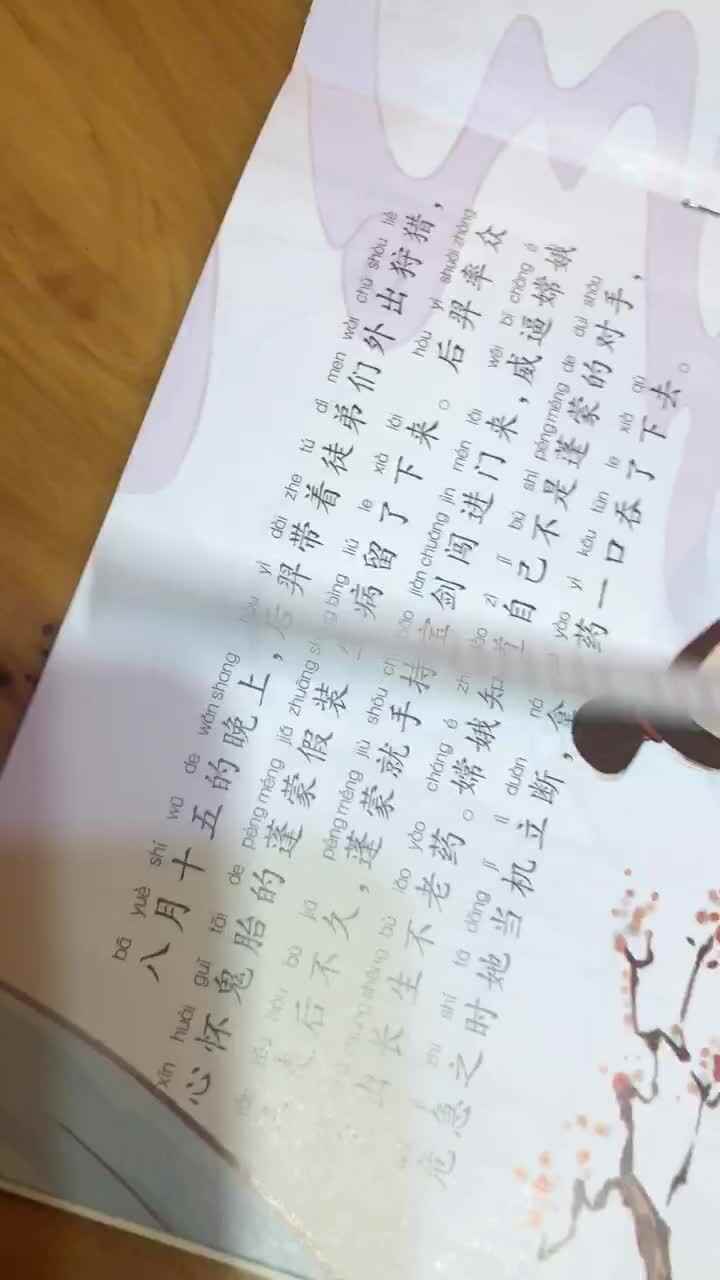 bā yuè shí wǔ de wǎn shang hòu yì dài zhe tú dì men wài chū shòu liè
八月十五的晚上，后羿带着徒弟们外出狩猎，
xīn huái guǐ tāi de péng méng jiǎ zhuāng bìng liú le xià lái hòu yì shuài zhòng
心怀鬼胎的蓬蒙假装病留了下来。后羿率众
hòu bù jiǔ péng méng jiù shǒu chí bǎo jiàn chuǎng jìn mén lái wēi bī cháng é
后不久，蓬蒙就手持宝剑闯进门来，威逼嫦娥
cháng shēng bù lǎo yào cháng é zhī dào zì jǐ bú shì péng méng de duì shǒu
出长生不老药。嫦娥知道自己不是蓬蒙的对手，
jí zhī shí tā dāng jī lì duàn ná yào yì kǒu tūn le xià qù
危急之时她当机立断，拿药一口吞了下去。